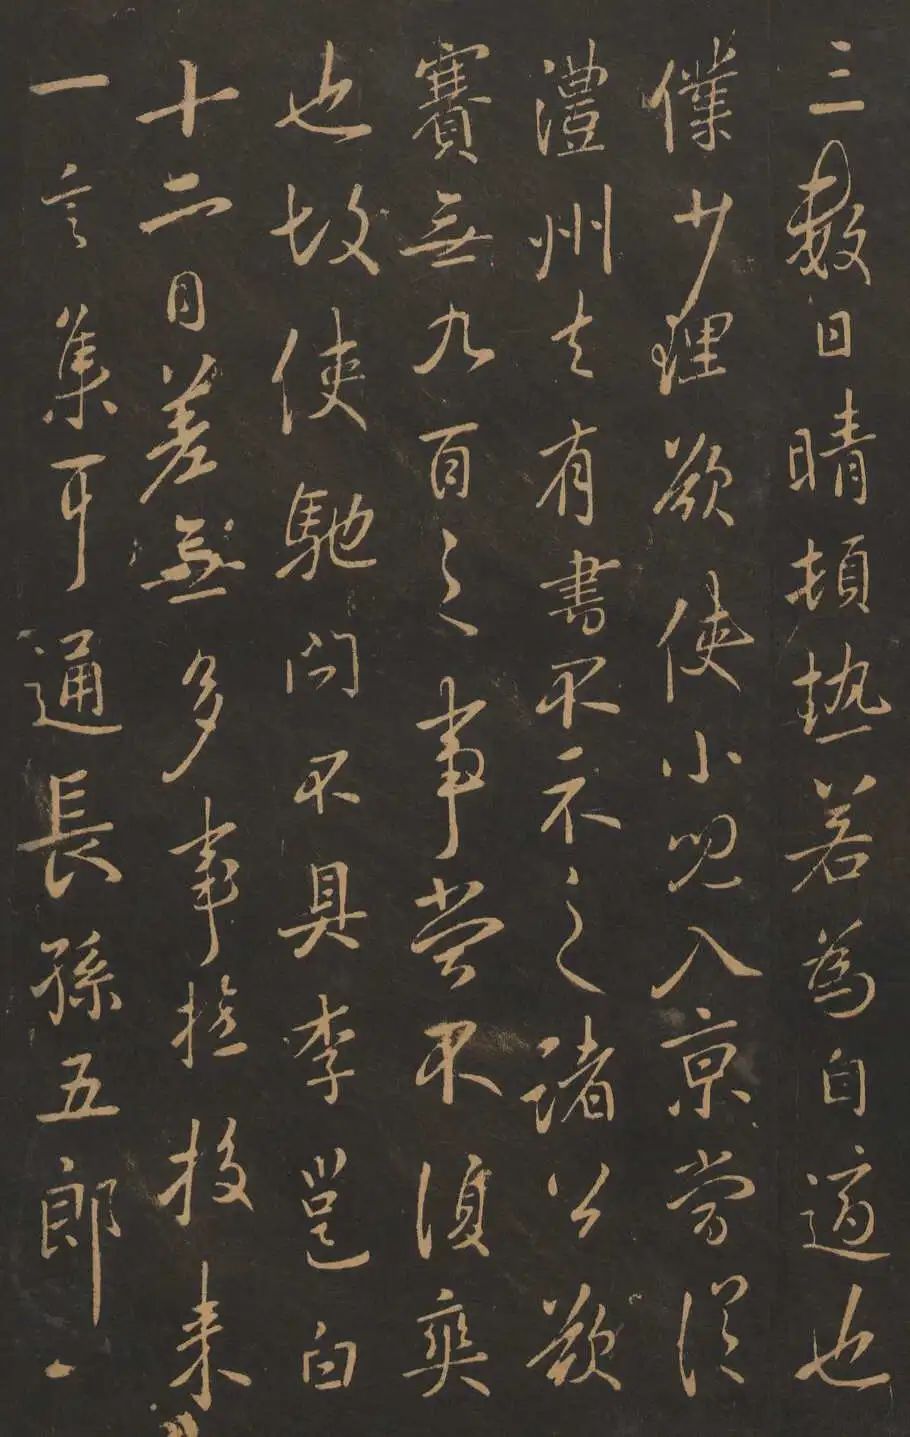 三數日晴頓熱若為自適也
僕少理欲使小兒入京當從
澧州去有書不示之諸公欲
賽無九百之事當不復爽
也故使馳問不具李邕白
十二日差無多事投来
一言集耳通長孫五郎